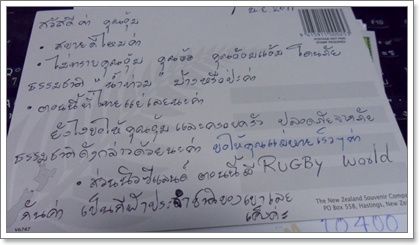 1 พ.ย. 2011
สวัสดีค่ะ คุณอุ้ม
• สบายดีไหมค่ะ
• ไม่ทราบคุณอุ้ม คุณอ้อ คุณอ้อมแอ้ม โดนภัย
ธรรมชาติ "น้ำท่วม" บ้างหรือป่ะค่ะ
• ตอนนี้ที่ไทยแย่เลยนะค่ะ
ยังไงขอให้คุณอุ้มและครอบครัว ปลอดภัยจากภัย
ธรรมชาติดังกล่าวด้วยนะค่ะ
• ส่วนนิวซีแลนด์ ตอนนี้มี RUGBY World
กันค่ะ เป็นกีฬาประจำชาติของเขาเลย
The New Zealand Souvenir Company
PO Box 558, Hastings, New Zea
10400